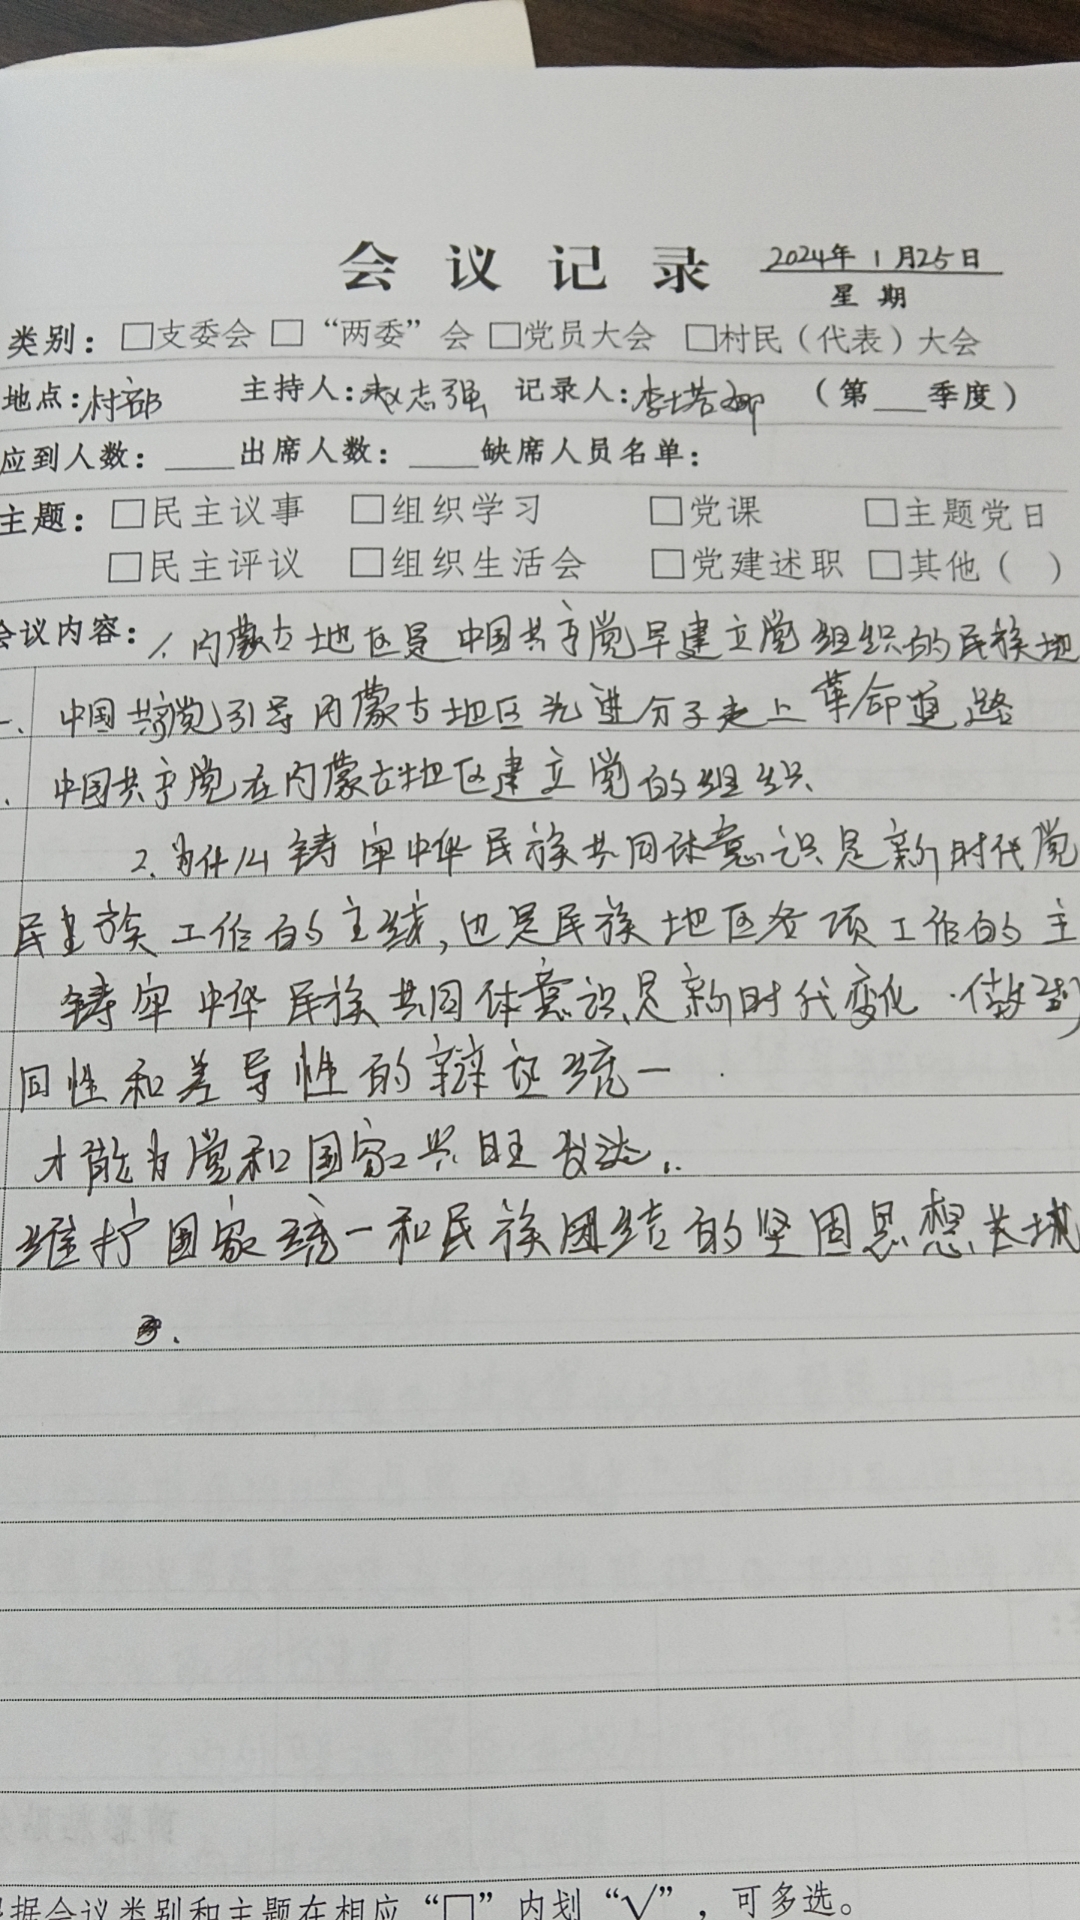 会议记录 2024年1月25日
星期
类别：□支委会 □“两委”会 □党员大会 □村民（代表）大会
地点：村部 主持人：赵志强 记录人：李塔娜 （第___季度）
应到人数：____出席人数：____缺席人员名单：
主题：□民主议事 □组织学习 □党课 □主题党日
□民主评议 □组织生活会 □党建述职 □其他（ ）
会议内容：1.内蒙古地区是中国共产党早建立党组织的民族地
一、中国共产党引导内蒙古地区先进分子走上革命道路
中国共产党在内蒙古地区建立党的组织
2.为什么铸牢中华民族共同体意识是新时代党
民族工作的主线,也是民族地区各项工作的主
铸牢中华民族共同体意识是新时代变化.做到
同性和差导性的辩证统一.
才能为党和国家兴旺发达..
维护国家统一和民族团结的坚固思想长城
根据会议类别和主题在相应“□”内划“√”，可多选。